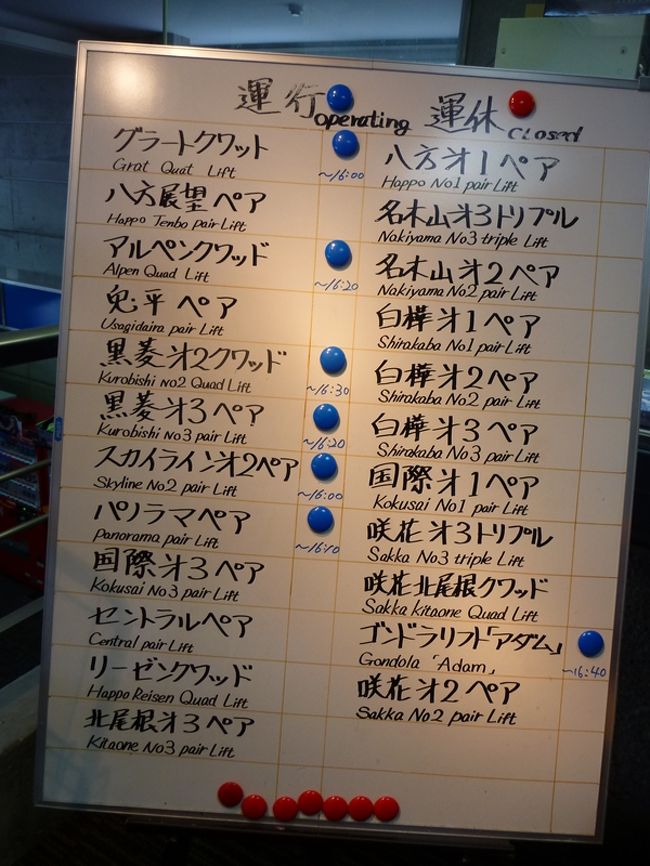 運行 operating 運休 Closed
グラートクワット
Grat Quat Lift
～16:00
八方展望ペア
Happo Tenbo pair Lift
アルペンクワッド
Alpen Quad Lift
～16:20
兎平ペア
Usagidaira pair Lift
黒菱才2クワッド
Kurobishi No2 Quad Lift
～16:30
黒菱才3ペア
Kurobishi No3 pair Lift
～16:20
スカイライン才2ペア
Skyline No2 pair Lift
～16:00
パノラマペア
panorama pair Lift
～16:10
国際才3ペア
Kokusai No3 pair Lift
セントラルペア
Central pair Lift
リーゼンクワッド
Happo Reisen Quad Lift
北尾根才3ペア
Kitaone No3 pair Lift
八方才1ペア
Happo No1 pair Lift
名木山才3トリプル
Nakiyama No3 triple Lift
名木山才2ペア
Nakiyama No2 pair Lift
白樺才1ペア
Shirakaba No1 pair Lift
白樺才2ペア
Shirakaba No2 pair Lift
白樺才3ペア
Shirakaba No3 pair Lift
国際才1ペア
Kokusai No1 pair Lift
咲花才3トリプル
Sakka No3 triple Lift
咲花北尾根クワッド
Sakka Kitaone Quad Lift
ゴンドラリフト「アダム」
Gondola 「Adam」
～16:40
咲花才2ペア
Sakka No2 pair Lift